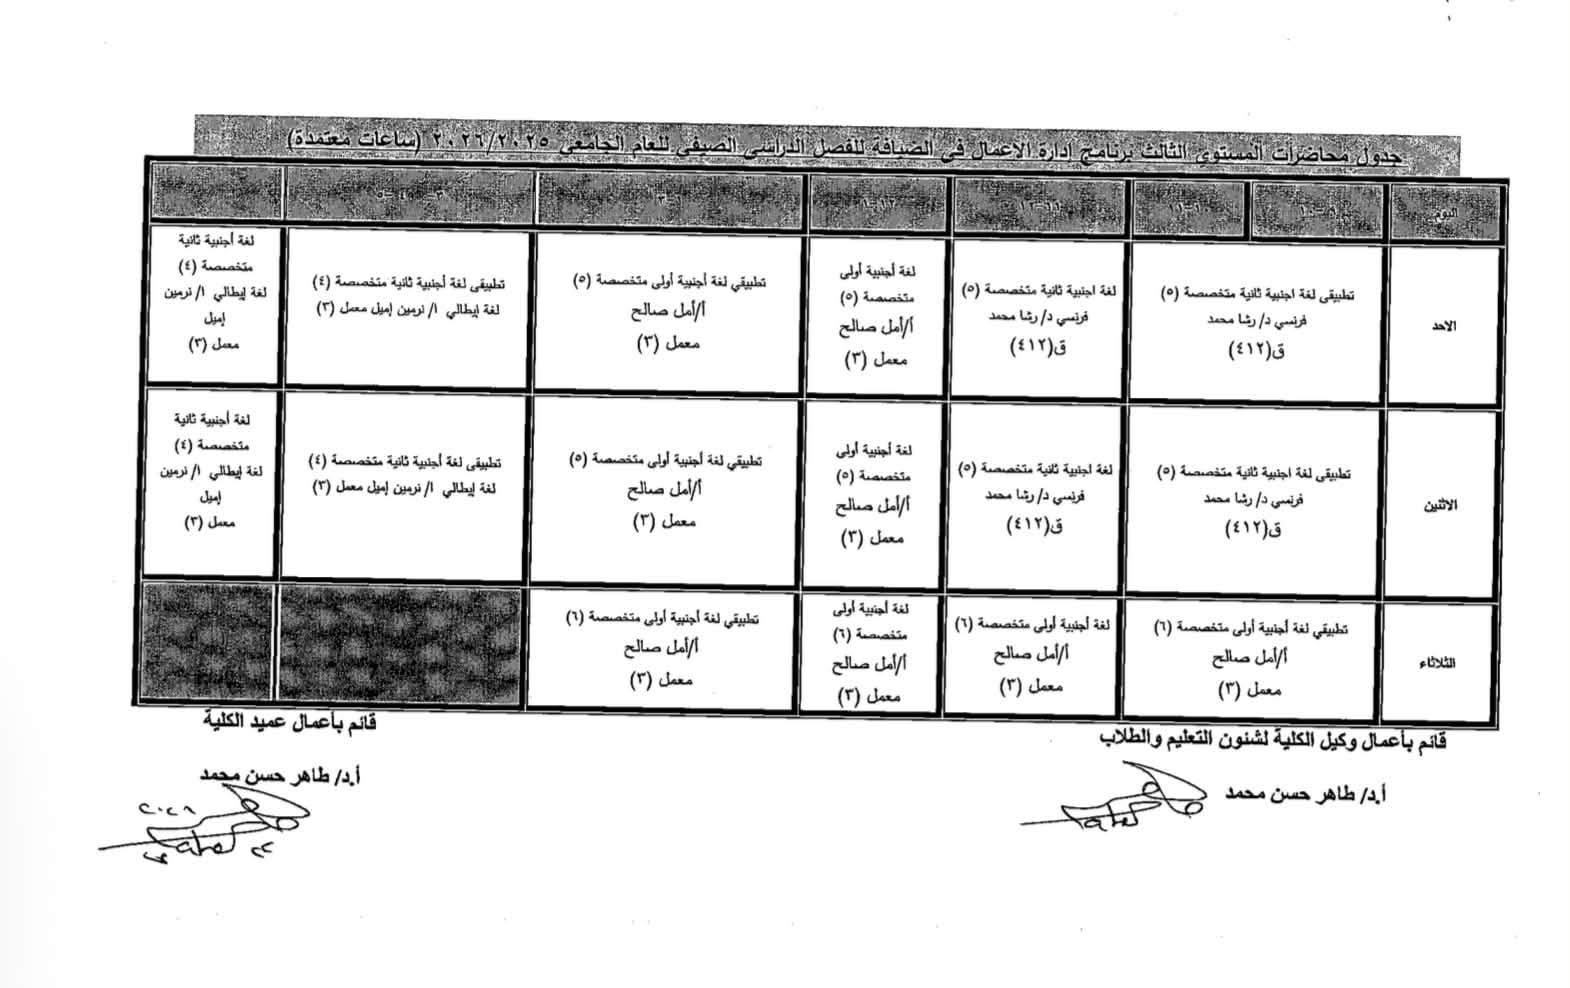 جدول محاضرات المستوى الثالث برنامج إدارة الاعمال في الضيافة للفصل الدراسي الصيفي للعام الجامعي ٢٠٢٦/٢٠٢٥ (ساعات معتمدة)
اليوم
١٠-١١
١١-١٢
١٢-١
١-٣
الاحد
تطبيقى لغة اجنبية ثانية متخصصة (٥)
فرنسي د/ رشا محمد
ق(٤١٢)
لغة اجنبية ثانية متخصصة (٥)
فرنسي د/ رشا محمد
ق(٤١٢)
لغة أجنبية أولى
متخصصة (٥)
أ/أمل صالح
معمل (٣)
تطبيقي لغة أجنبية أولى متخصصة (٥)
أ/أمل صالح
معمل (٣)
تطبيقى لغة أجنبية ثانية متخصصة (٤)
لغة إيطالي ا/ نرمين إميل معمل (٣)
لغة أجنبية ثانية
متخصصة (٤)
لغة إيطالي ا/ نرمين
إميل
معمل (٣)
الاثنين
تطبيقى لغة اجنبية ثانية متخصصة (٥)
فرنسي د/ رشا محمد
ق(٤١٢)
لغة اجنبية ثانية متخصصة (٥)
فرنسي د/ رشا محمد
ق(٤١٢)
لغة أجنبية أولى
متخصصة (٥)
أ/أمل صالح
معمل (٣)
تطبيقي لغة أجنبية أولى متخصصة (٥)
أ/أمل صالح
معمل (٣)
تطبيقى لغة أجنبية ثانية متخصصة (٤)
لغة إيطالي ا/ نرمين إميل معمل (٣)
لغة أجنبية ثانية
متخصصة (٤)
لغة إيطالي ا/ نرمين
إميل
معمل (٣)
الثلاثاء
تطبيقي لغة أجنبية أولى متخصصة (٦)
أ/أمل صالح
معمل (٣)
لغة أجنبية أولى متخصصة (٦)
أ/أمل صالح
معمل (٣)
لغة أجنبية أولى
متخصصة (٦)
أ/أمل صالح
معمل (٣)
تطبيقي لغة أجنبية أولى متخصصة (٦)
أ/أمل صالح
معمل (٣)
قائم بأعمال وكيل الكلية لشئون التعليم والطلاب
أ.د/ طاهر حسن محمد
قائم بأعمال عميد الكلية
أ.د/ طاهر حسن محمد
٢٠٢٦